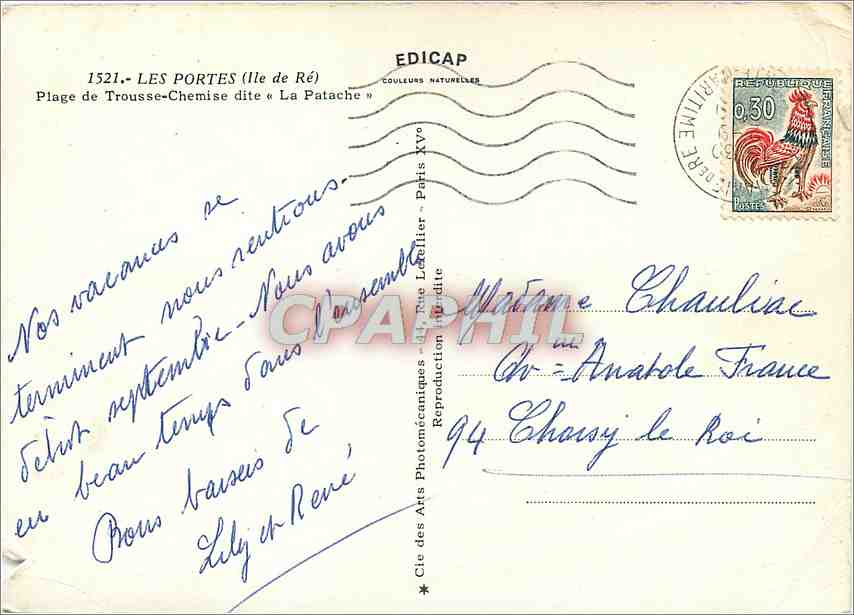 1521.- LES PORTES (Ile de Ré)
Plage de Trousse-Chemise dite « La Patache »
EDICAP
COULEURS NATURELLES
MARITIME
ILE DE RE
REPUBLIQUE FRANÇAISE
0,30
POSTES
Nos vacances se
terminent nous rentrons
début septembre - Nous avons
eu beau temps dans l'ensemble
Bons baisers de
Lily et René
Cie des Arts Photomécaniques - 44, Rue Letellier - Paris XVe
Reproduction interdite
Madame Chauliac
Av = Anatole France
94 Choisy le Roi
CPAPHIL